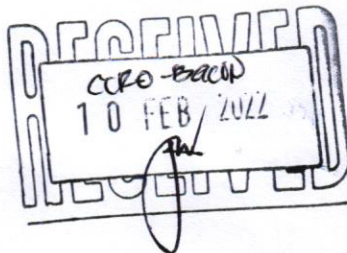 RECEIVED
CCRO-BACON
10 FEB 2022
RECEIVED